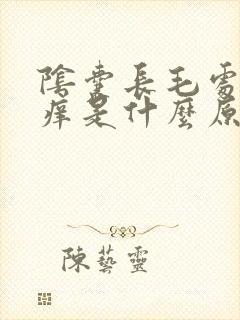 陰囊長毛處
癢是什麼原
陳藝靈